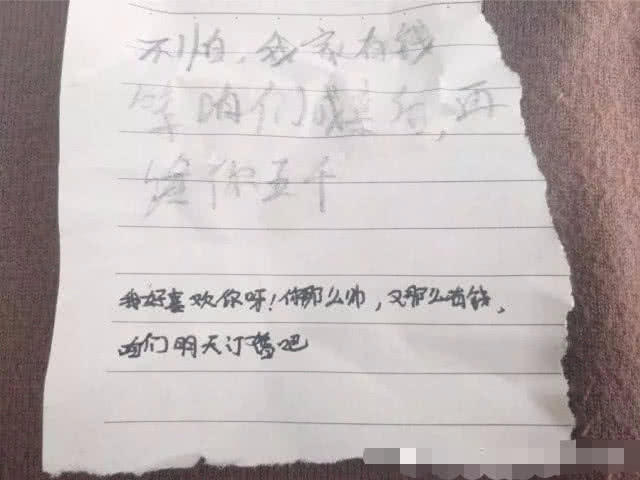 不怕，我家有钱
等咱们成完婚，再
给你五千
我好喜欢你呀！你那么帅，又那么有钱，
咱们明天订婚吧